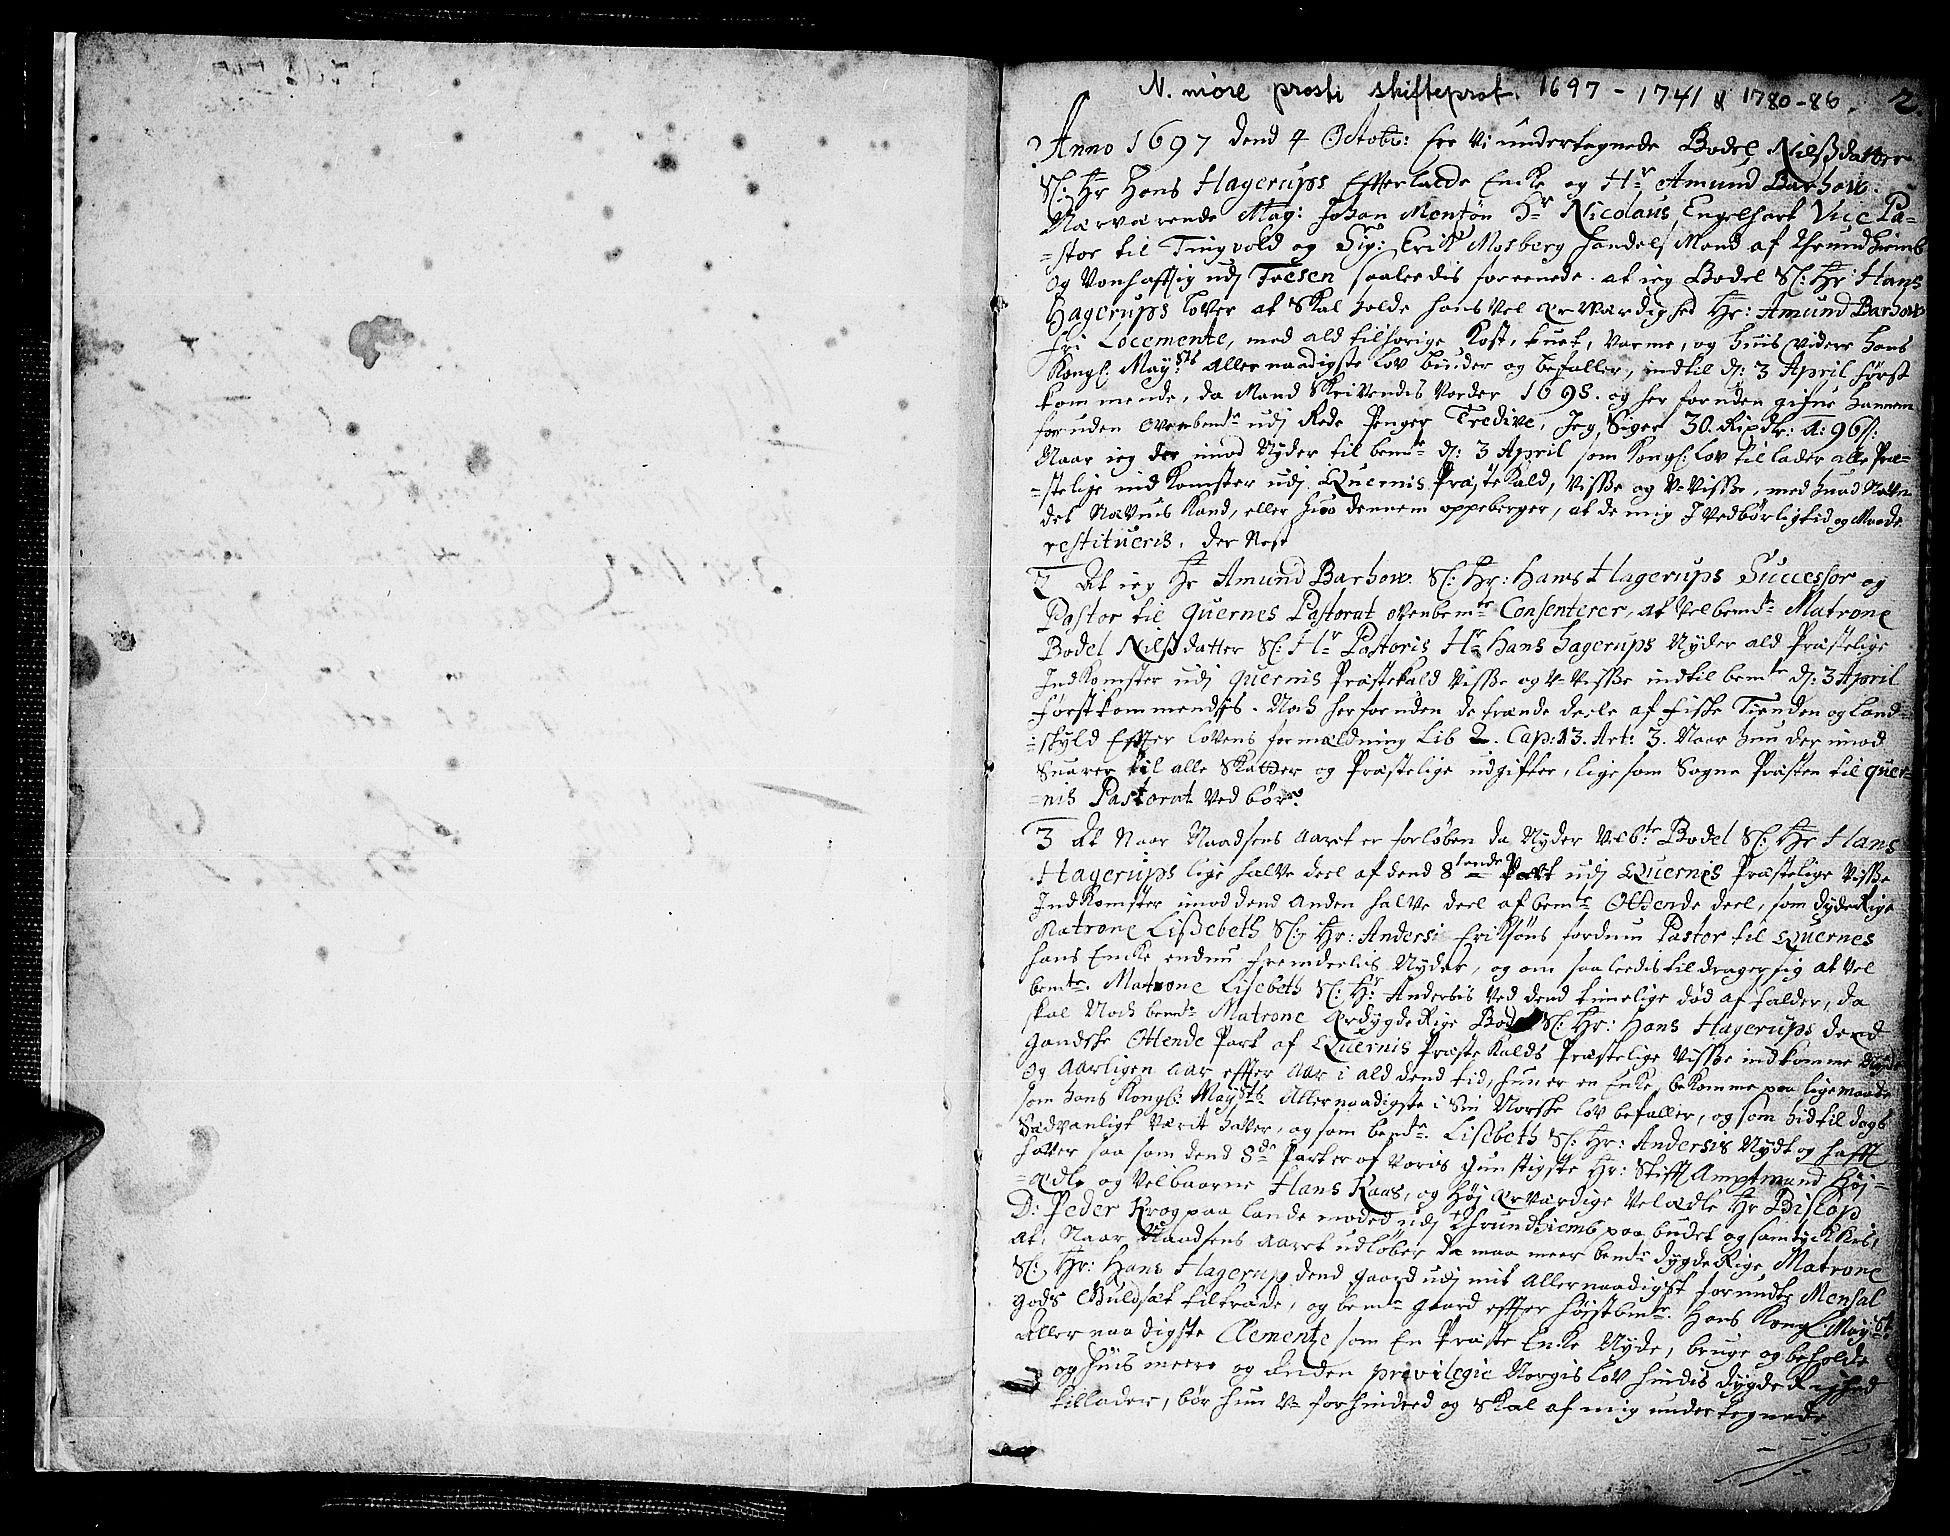 N. möre prosti skifteprot. 1697 - 1741 & 1780-86.
2.
Anno 1697 dend 4 Octobr: ere Vi undertegnede Bodel Nilsdatter
Sl: Hr Hans Hagerups Effterladde Encke og Hr Amund Barhow.
Nærværende Mag: Johan Mentzøn Hr Nicolaus Engelhart Vice Pa-
-stor til Tingvold og Sig: Erick Mosberg Handels Mand af Thrundhiemb
Og Vonhafftig udj saaledis foreenede. at ieg Bodel Sl: Hr: Hans
Hagerups lover at Skal holde hans Vel ærwærdighed Hr: Amund Barhow
fri Locemente, med ald tilhørige Kost, Varme, og huis videre hans
Kongl: Mays:ts Allernaadigste Lov biuder og befaller, indtil d: 3 April først
kommende, da Mand Skrivendis Vorder 1698. og her foruden gifue hannem
foruden ovenbemte udj Rede Penger Tredive, Jeg Siger 30. Rixdlr: a: 96 s:
Naar ieg der imod Nyder til bemte d: 3 April som Kongl: Lov tillader alle Præ-
-stelige indkomster udj Quernis Præste Kald, Visse og V-Visse, med huad Navn
det Næfnis Kand, eller huo dennem oppeberger, at de mig J Vedbørlig tid og Maade
restitueris. der Nest
2 At ieg Hr Amund Barhow. Sl: Hr: Hans Hagerups Successor og
Pastor til Quernes Pastorat ovenbemte Consenterer, at Velbemte Matrone
Bodel Nilsdatter Sl: Hr Pastoris Hr Hans Hagerups Nyder ald Præstelige
Jndkomster udj Quernis Præstekald Visse og V-Visse indtil bemte d: 3 April
førstkommendis. Noch herforuden de trende deele af Fiske Tienden og Land-
-skyld Effter Lovens formældning Lib 2. Cap: 13. Art: 3. Naar hun der imod
Suarer til alle Skatter og Præstelige udgifter, lige som Sogne Præsten til Quer-
-nis Pastorat Ved bør.
3 At Naar Naadsens Aaret er forløben da Nyder Velbte Bodel Sl: Hr Hans
Hagerups lige halve deel af dend 8tende Part udj Quernes Præstelige Visse
Jndkomster imod dend anden halve deel af bemte Ottende deel, som dydeRige
Matrone Lissebeth Sl: Hr: Andersis Eriksøns fordum Pastor til Quernes
hans Encke endnu fremdeelis Nyder, og om saaleedis tildrager sig at Vel
bemte. Matrone Lisebeth Sl: Hr: Andersis Ved dend timelige død af falder, da
skal Noch bemte Matrone Ærdygderige Bodel Sl: Hr: Hans Hagerups dend
gandske Ottende Part af Quernis Præste Kalds Præstelige Visse indkomme Nyde
Og Aarligen Aar effter Aar i ald dend tid, hun er en Encke, bekomme paa lige maade
som hans Kongl: Mays:ts Allernaadigste i Sin Norske Lov befaller, og som hidtil dags
Sædvanligt Værit haver, og som bemte. Lisebeth Sl: Hr: Andersis Nydt og hafft
haver saa som dend 8de Part er af Voris gunstigste Hr: Stifft Amptmand Høj-
-ædle og Velbaarne Hans Kaas, og Høj ærværdige Velædle Hr Biskop
D: Peder Krog paa Lande moded udj Thrundhiemb paa budet og samtyckkis,
at Naar Naadsens Aaret udløber da maa meer bemte dygdeRige Matrone
Sl: Hr: Hans Hagerups dend gaard udj mit Allernaadigst forundte Mensal
gods tiltræde, og bemte gaard effter høystbemte. Hans Kongl May:ts
Aller naadigste Clementze som En Præste Encke Nyde, bruge og beholde
og huis meere og Anden previlegie Norgis Lov hindis dygdeRighed
tillader, bør hun V-forhindred og Skal af mig undertegnede